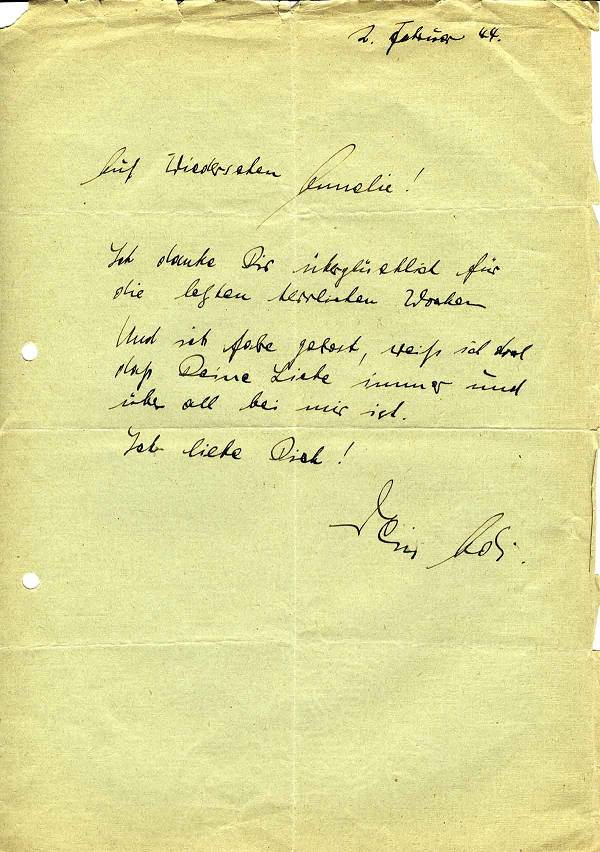 2. Februar 44.
Auf Wiedersehen Annelie!
Ich danke Dir überglücklich für
die letzten herrlichen Wochen
Und ich fahre getrost, weiß ich doch
daß Deine Liebe immer und
über all bei mir ist.
Ich liebe Dich!
Dein